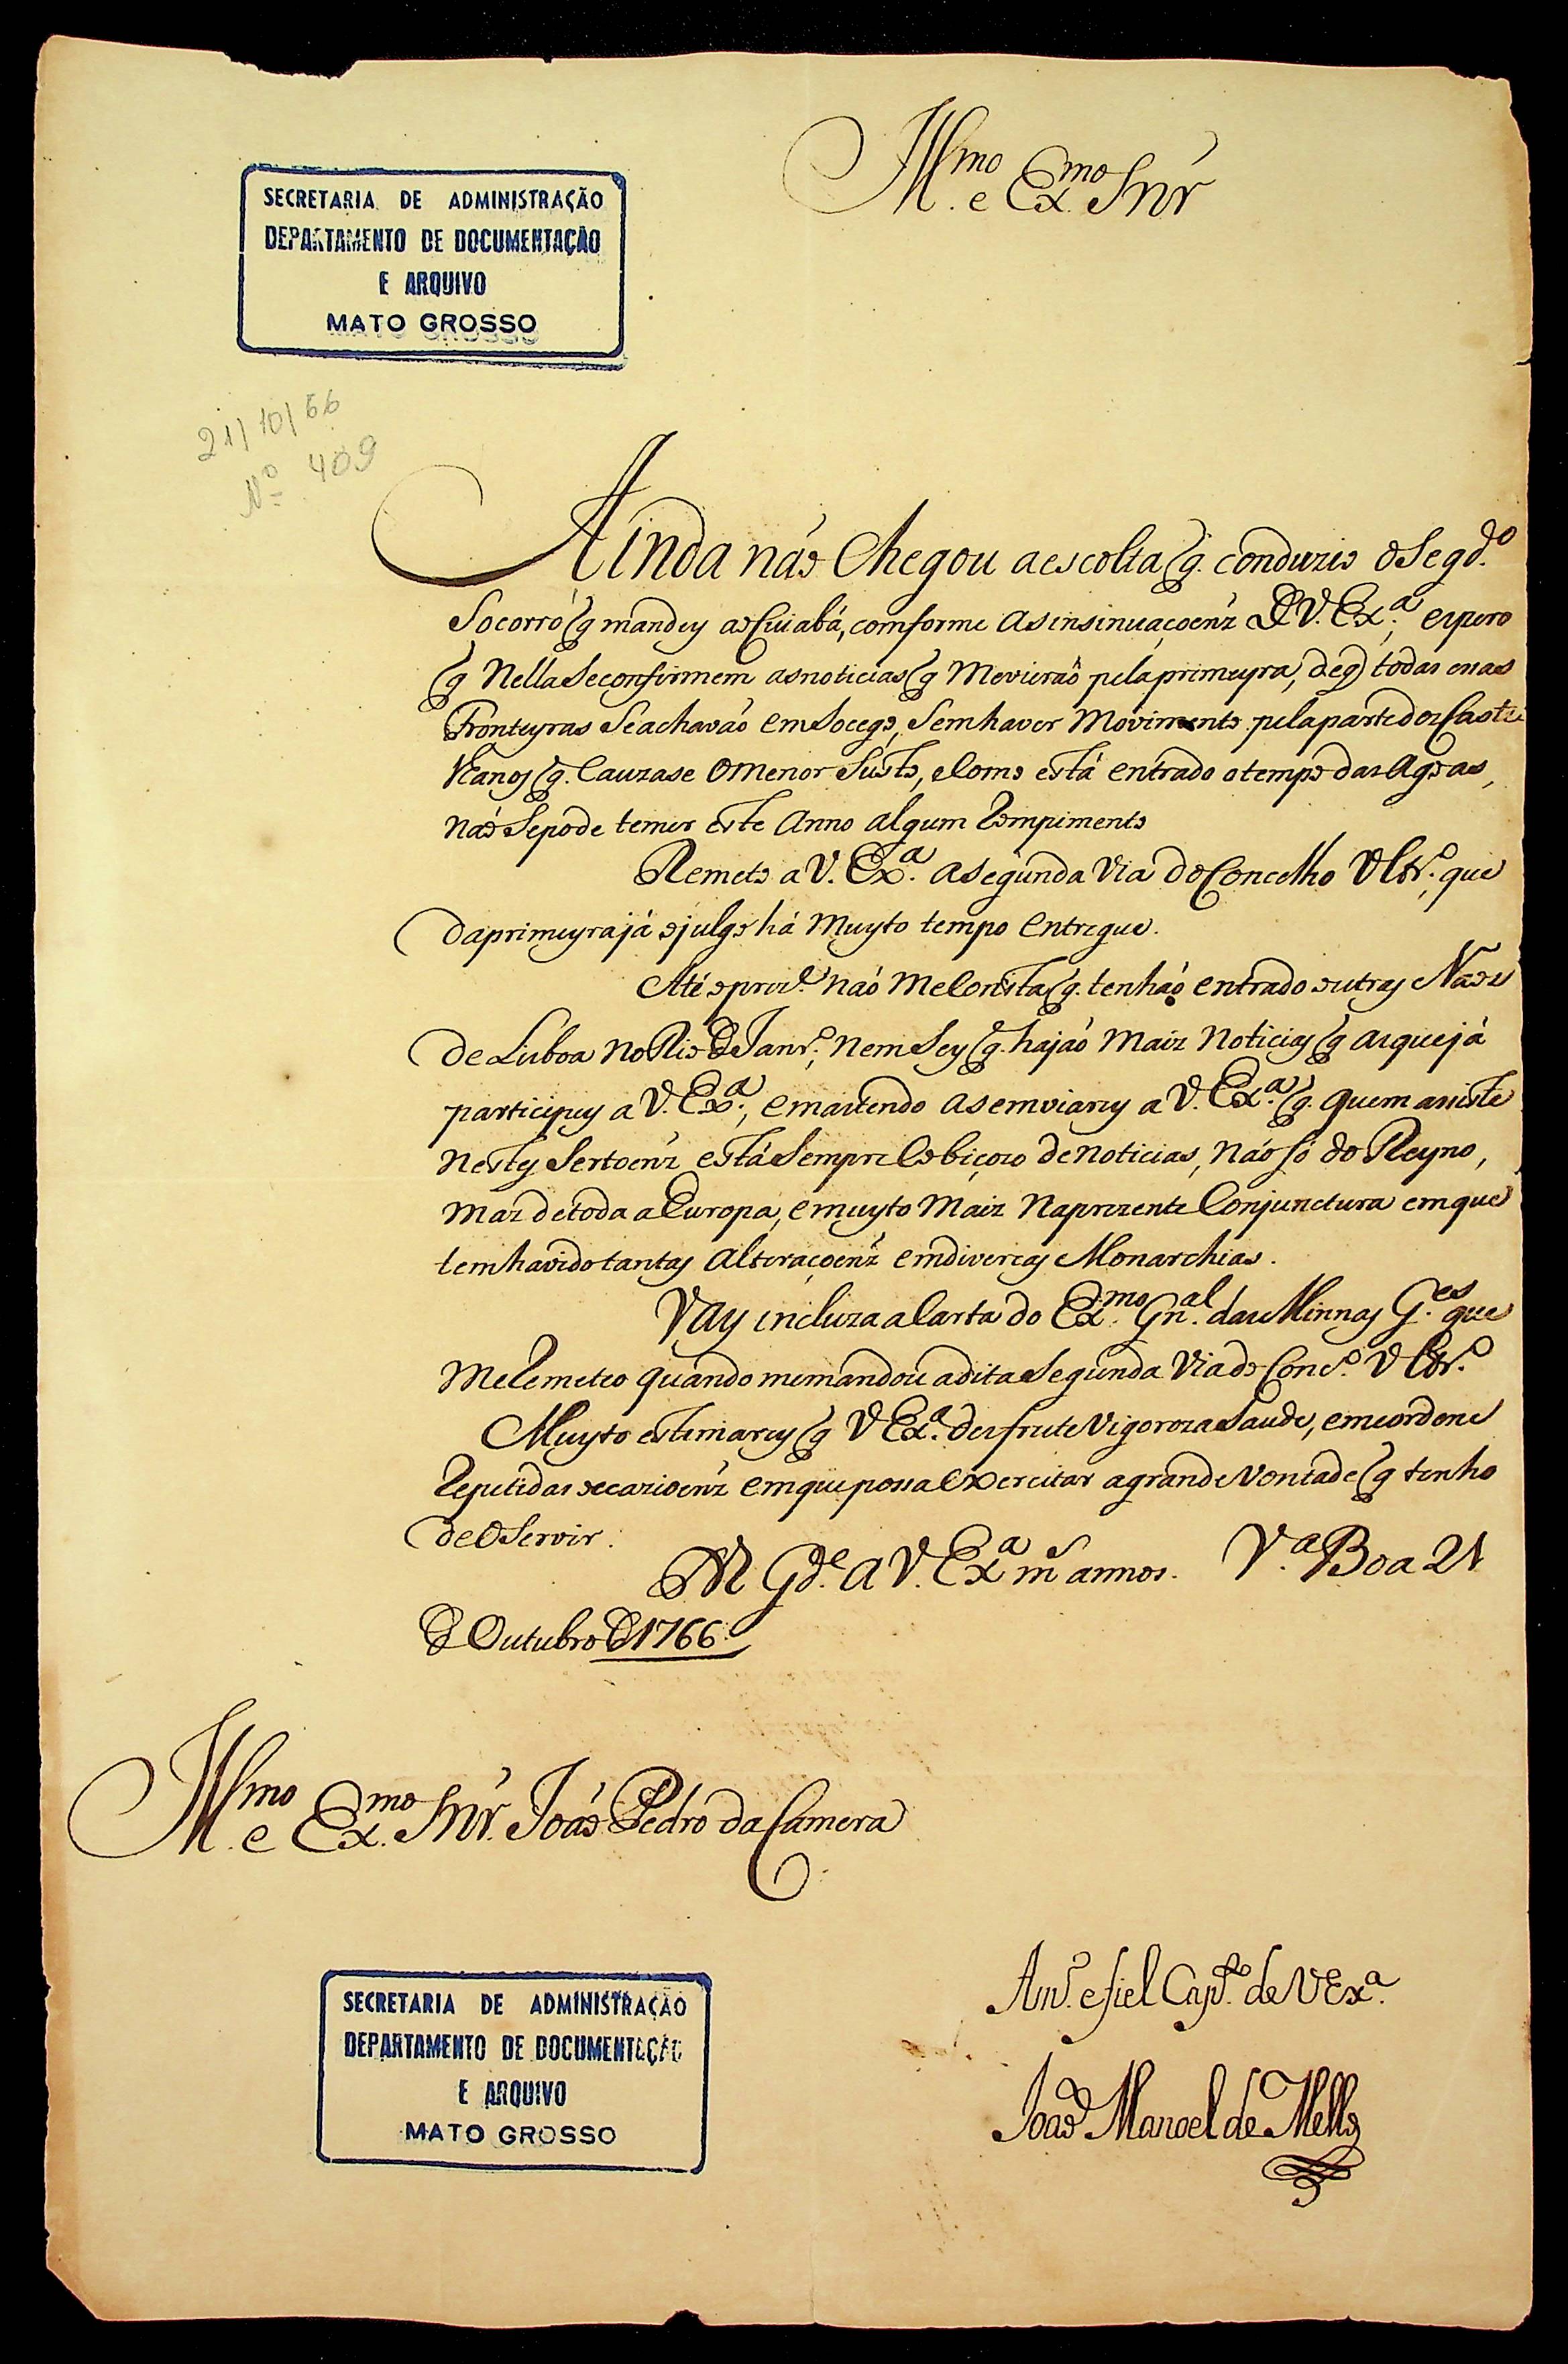 Ill.mo e Ex.mo Snr
SECRETARIA DE ADMINISTRAÇÃO
DEPARTAMENTO DE DOCUMENTAÇÃO
E ARQUIVO
MATO GROSSO
21/10/66
Nº 409
Ainda não Chegou a escolta q. conduzio o Segd.o
Socorro q mandey ao Cuiabá, comforme as insinuaçoenz de V. Ex.a, espero
q Nella se confirmem as noticias q Me vierão pela primeyra, de q todas essas
Fronteyras Se achavão em Socego, Sem haver Movimento pela parte dos Caste
lhanos q. Cauzase o menor Susto, e Como está entrado o tempo das Agoas,
não Se pode temer este Anno algum Rompimento
Remeto a V. Ex.a a Segunda Via do Concelho Vltr.o, que
da primeyra já o julgo há Muyto tempo Entregue.
Até o prez.e não Me Consta q. tenhão entrado outras Naoz
de Lisboa No Rio de Janr.o, Nem Sey q. hajão Maiz Noticias q as que já
participey a V. Ex.a, e mas tendo as emviarey a V. Ex.a q. quem asiste
Nestes Sertoenz está Sempre Cobiçozo de Noticias, Não só do Reyno,
Maz de toda a Europa, e muyto Maiz Na prezente Conjunctura em que
tem havido tantas Alteraçoenz em divercas Monarchias.
Vay incluza a Carta do Ex.mo Gn.al das Minnas G.es que
Me Remeteo quando me mandou a dita Segunda Via do Conc.o Vltr.o
Muyto estimarey q V Ex.a desfrute Vigoroza Saude, e me ordene
Repetidas occazioenz em que possa Exercitar a grande Vontade q tenho
de o Servir.
Gd.e a V. Ex.a m.s annos. V.a Boa 21
de Outubro de 1766.
Ill.mo e Ex.mo Snr. João Pedro da Camera
Am.o e fiel Cap.to de V Ex.a
João Manoel de Mello
SECRETARIA DE ADMINISTRAÇÃO
DEPARTAMENTO DE DOCUMENTAÇÃO
E ARQUIVO
MATO GROSSO